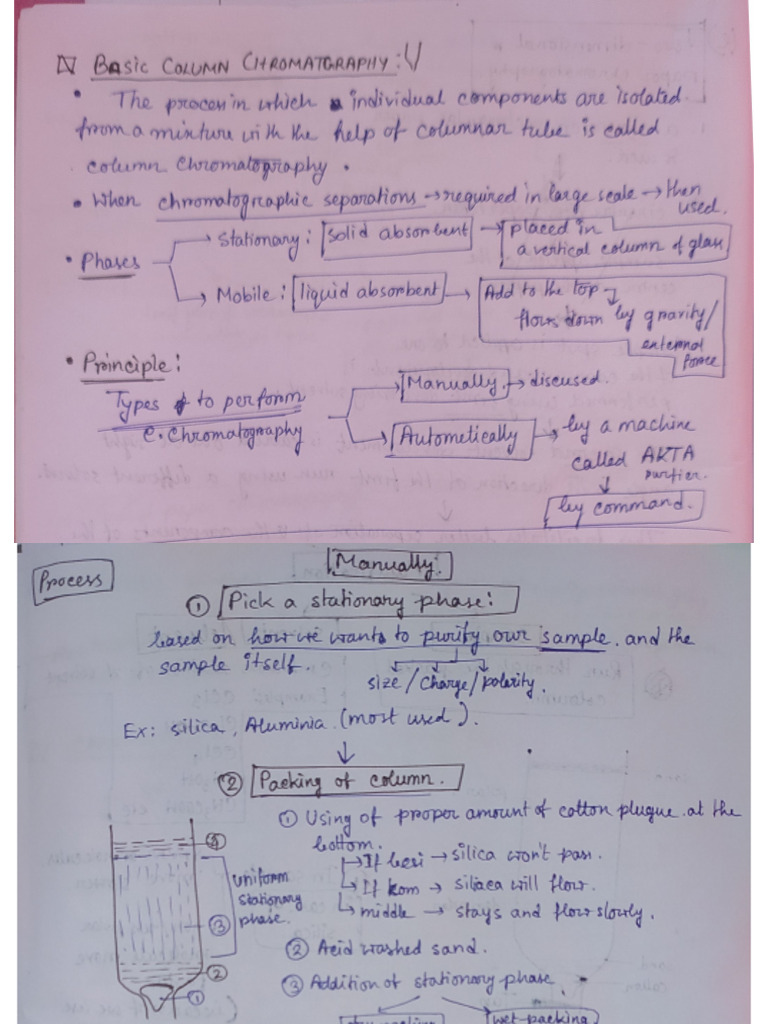 BASIC COLUMN CHROMATGRAPHY:
• The process in which individual components are isolated
from a mixture with the help of columnar tube is called
column chromatography.
• When chromatographic separations → required in large scale → then
used.
• Phases
→ Stationary: solid absorbent → placed in
a vertical column of glass
→ Mobile: liquid absorbent → Add to the top
flows down by gravity/
external
force
• Principle:
Types to perform
C. Chromatography
→ Manually → discused.
→ Autometically → by a machine
called AKTA
purifier.
↓
by command.
Process
Manually.
① Pick a stationary phase:
based on how we wants to purify our sample. and the
sample itself.
size / charge / polarity.
Ex: silica, Aluminia (most used).
↓
② Packing of column.
① Using of proper amount of cotton plugue at the
bottom.
→ If besi → silica won't pass.
→ If kom → siliaca will flow.
→ middle → stays and flow slowly.
② Acid washed sand.
③ Addition of stationary phase.
dry packing
wet packing
uniform
stationary
phase.
③
②
①